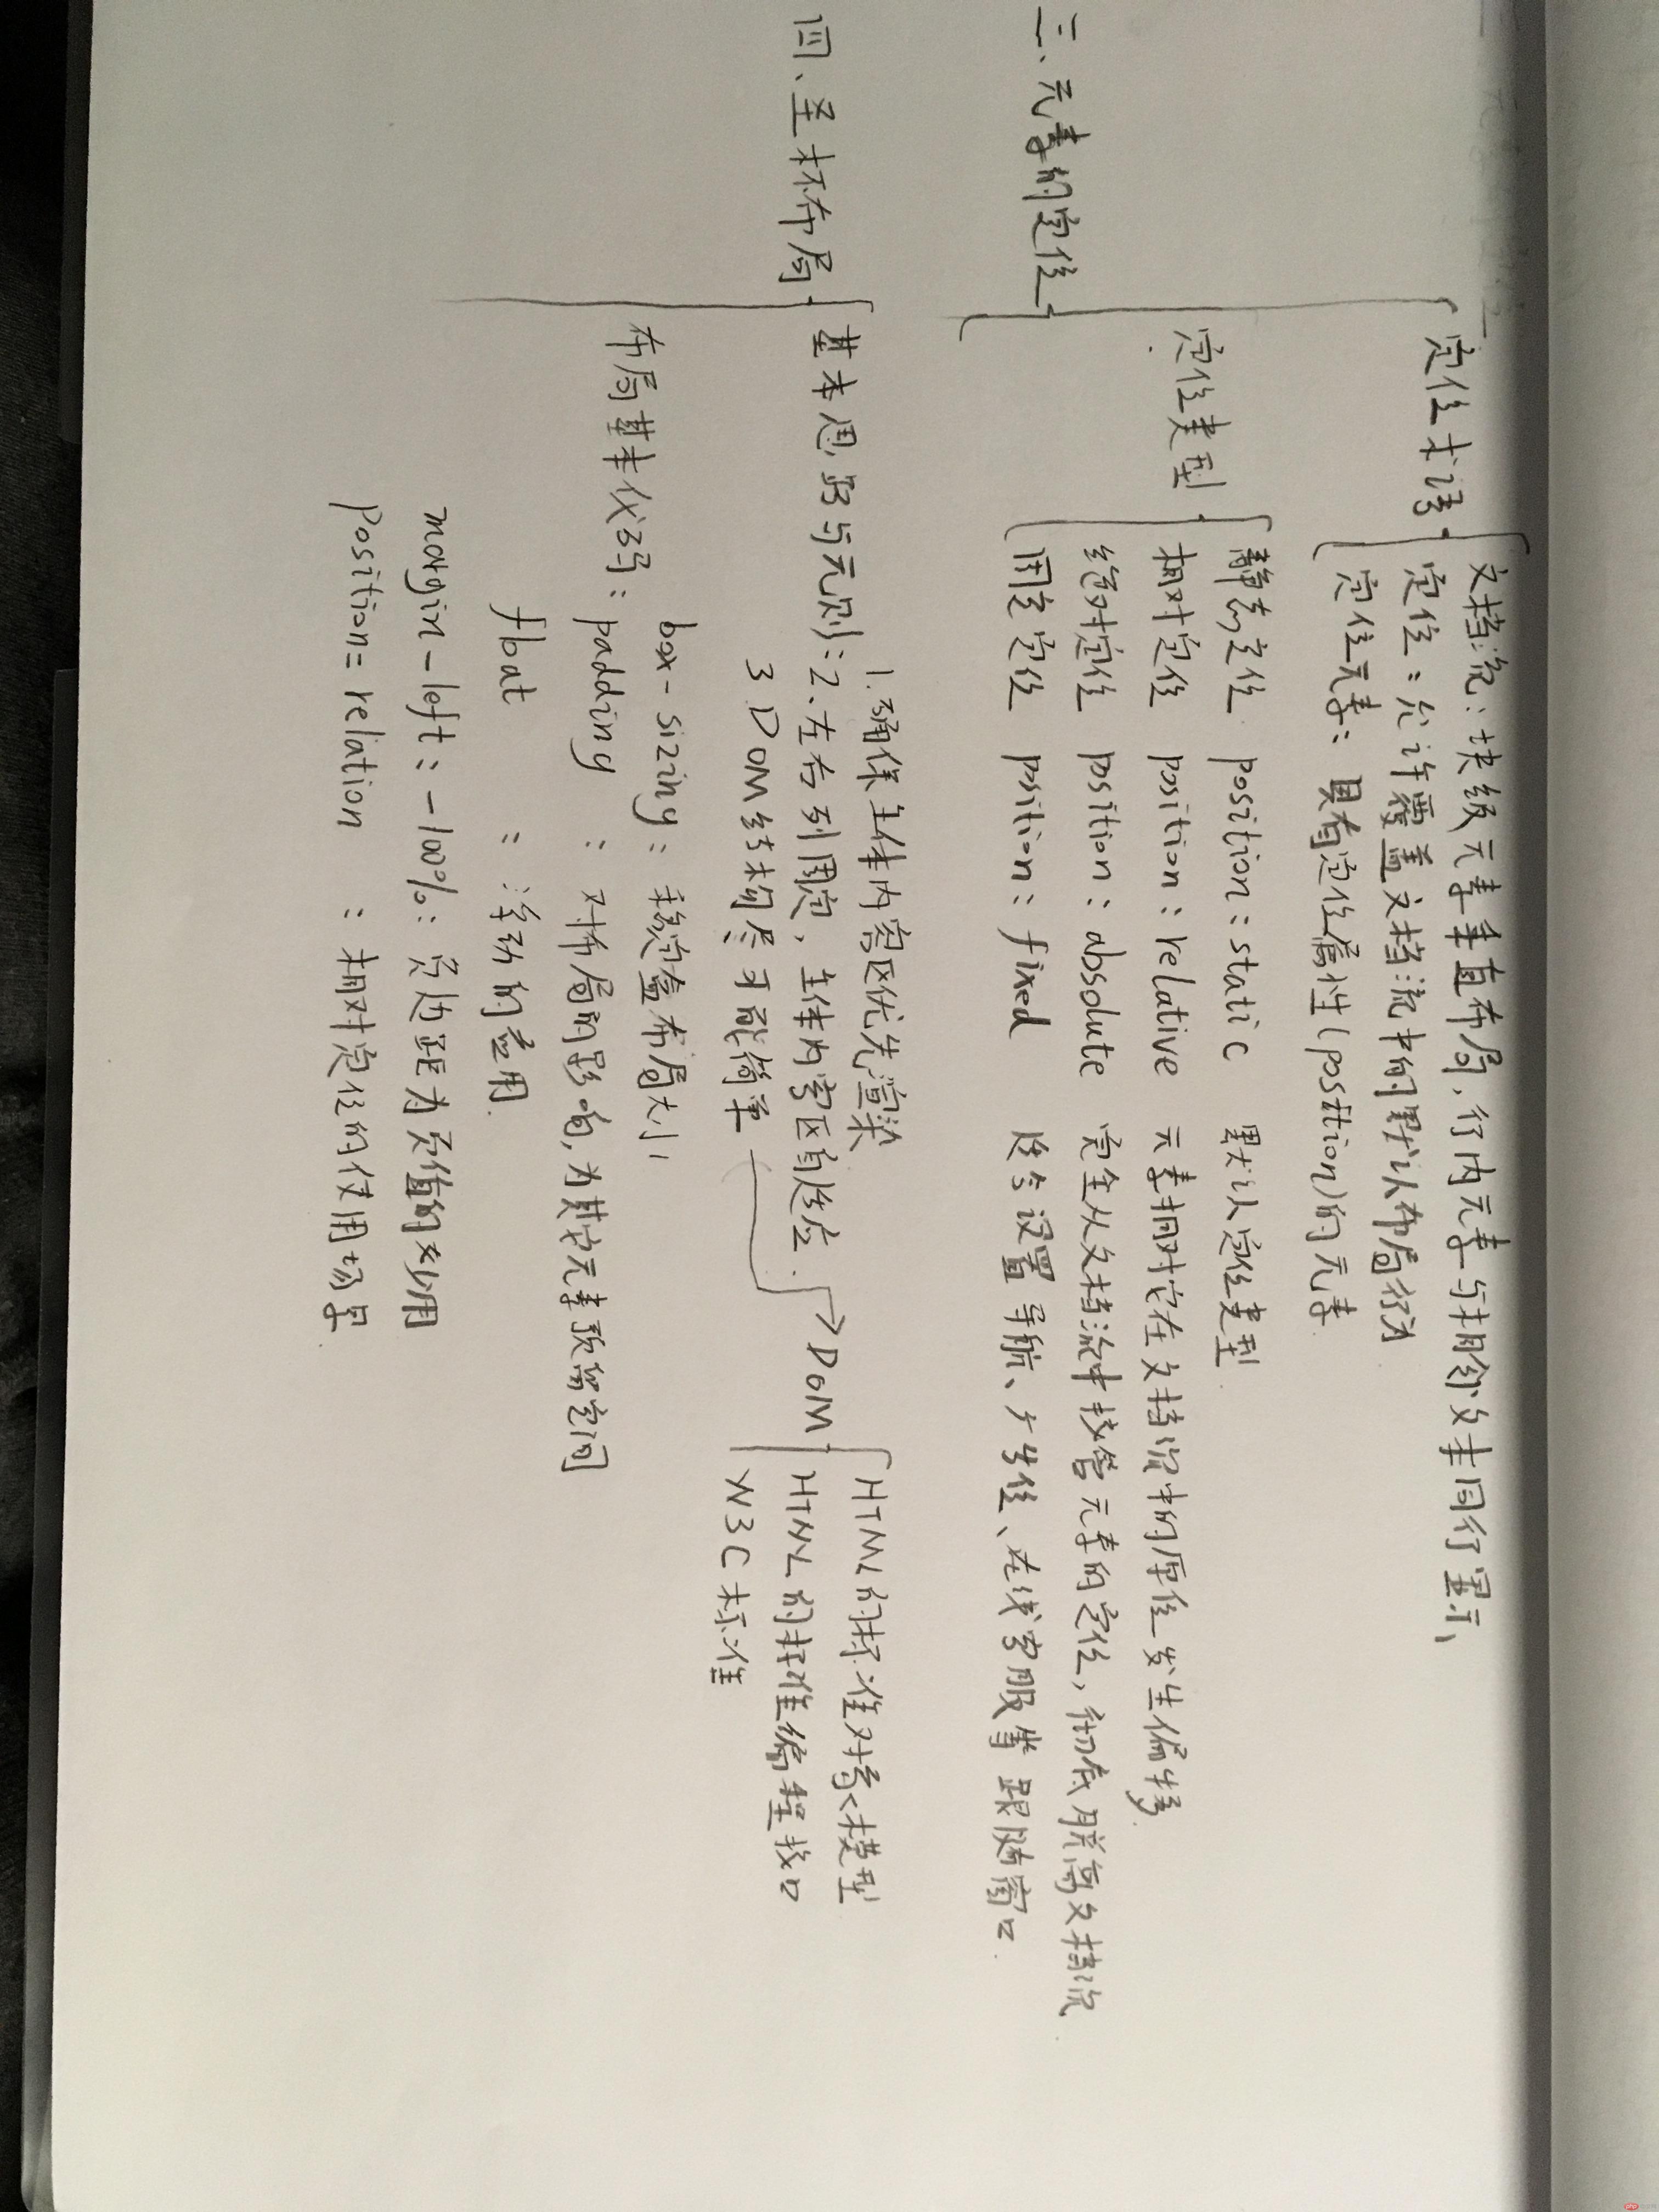 定位术语
文档流：块级元素垂直布局，行内元素与相邻文本同行显示
定位：允许覆盖文档流中的默认布局行为
定位元素：具有定位属性(position)的元素
三、元素的定位
定位类型
静态定位 position：static 默认定位类型
相对定位 position：relative 元素相对它在文档流中的原位发生偏移.
绝对定位 position：absolute 完全从文档流中接管元素的定位，彻底脱离文档流.
固定定位 position：fixed 设置 导航、广告位、在线客服等 跟随窗口.
四、圣杯布局
基本思路与元则：
1.确保主体内容区优先渲染
2.左右列固定，主体内容区自适应.
3.DOM结构尽可能简单
DOM
HTML的标准对像模型
HTML的标准编程接口
W3C标准
布局基本代码：
box-sizing：稳定盒布局大小
padding：对布局的影响，为其它元素预留空间
float：浮动的应用.
margin-left：-100%：负边距为负值的妙用
position=relation：相对定位的使用场景.